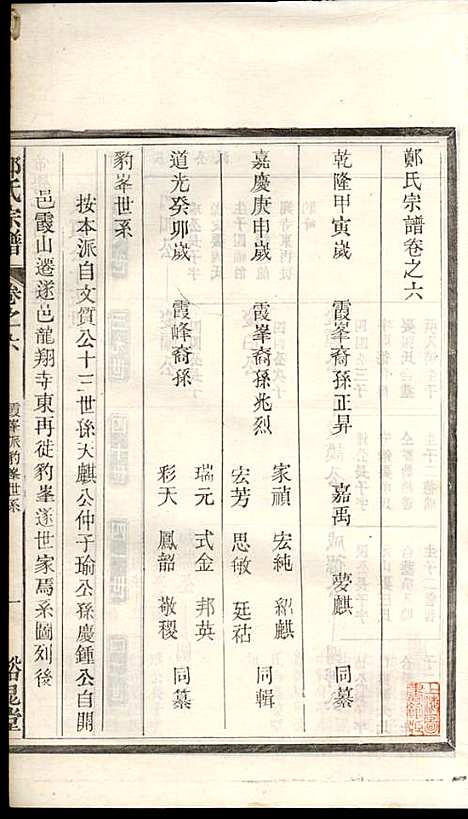 鄭氏宗譜卷之六
乾隆甲寅嵗 霞峯裔孫正昇 嘉禹 夢麒 同纂
嘉慶庚申嵗 霞峯裔孫兆烈 家禎 宏純 紹麒
宏芳 思敏 廷祜 同輯
道光癸卯嵗 霞峰裔孫 瑞元 式金 邦英
彩天 鳳韶 敬稷 同纂
豹峯世系
按本派自文質公十三世孫大麒公仲子瑜公孫慶鍾公自開
邑霞山遷遂邑龍翔寺東再徙豹峯遂世家焉系圖列後
鄭氏宗譜 卷之六 霞峯派豹峯世系 一